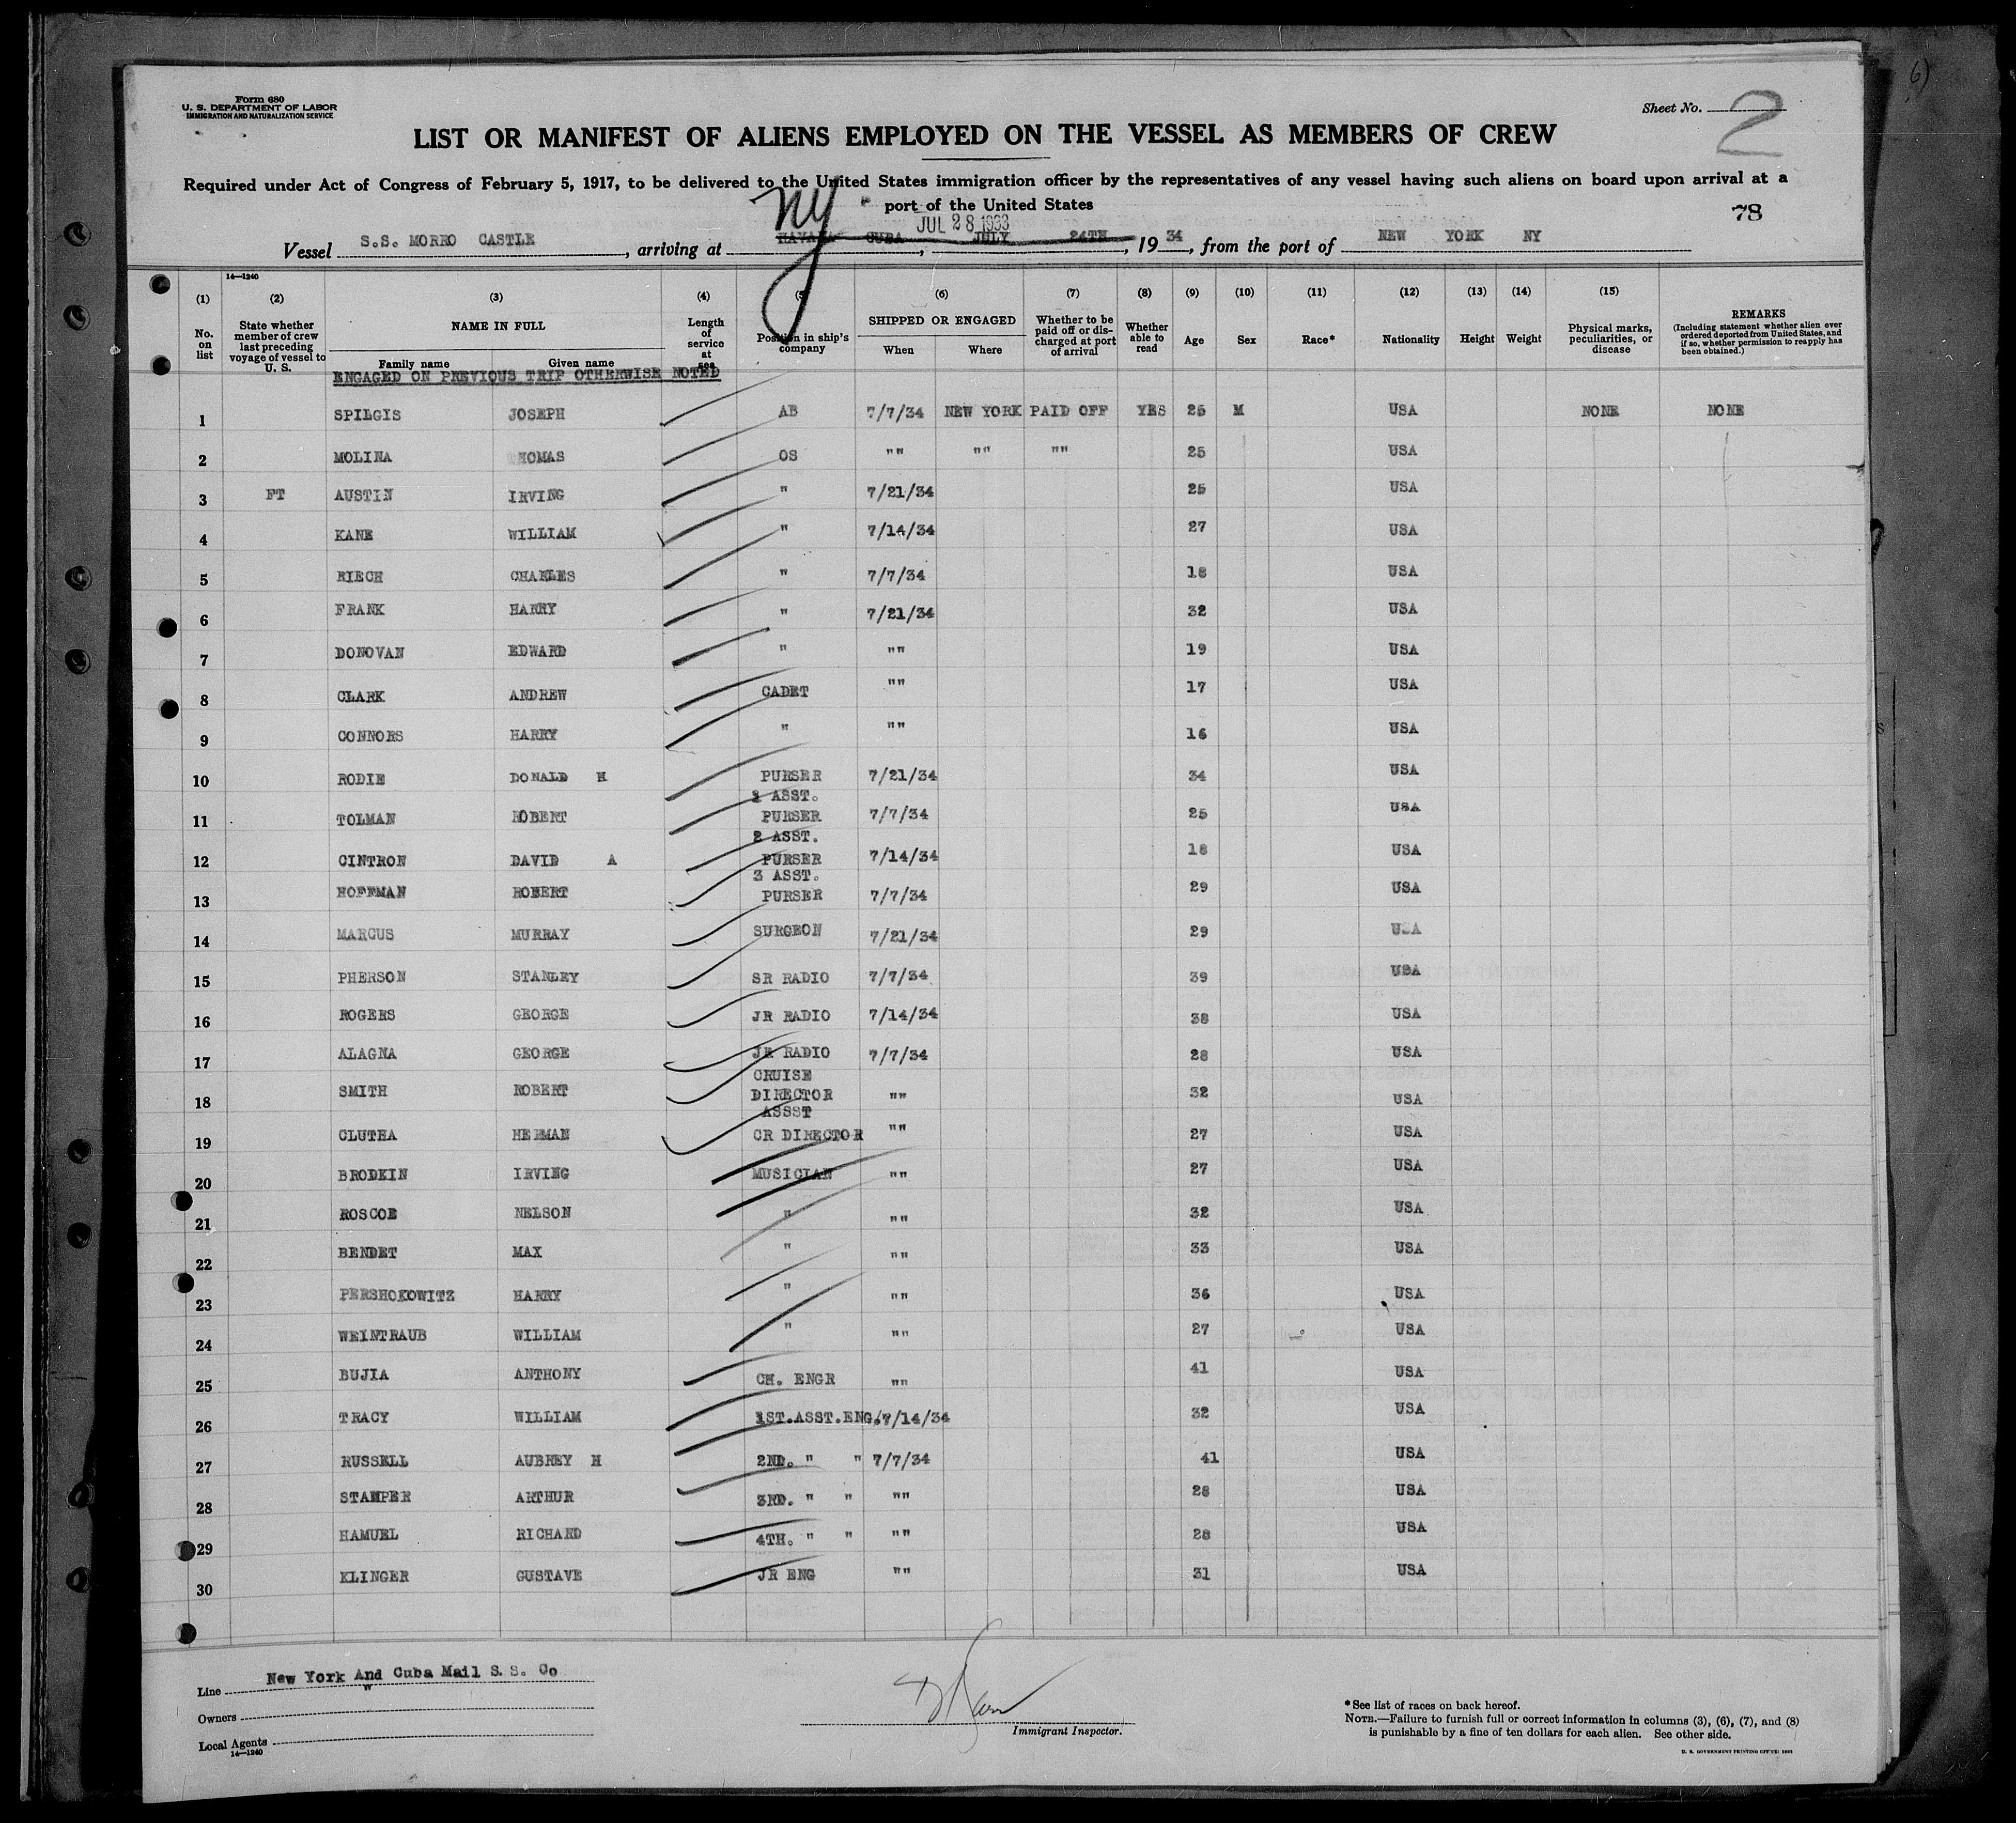 Form 680
U. S. DEPARTMENT OF LABOR
IMMIGRATION AND NATURALIZATION SERVICE
Sheet No. 2
LIST OR MANIFEST OF ALIENS EMPLOYED ON THE VESSEL AS MEMBERS OF CREW
Required under Act of Congress of February 5, 1917, to be delivered to the United States immigration officer by the representatives of any vessel having such aliens on board upon arrival at a
port of the United States
78
NY JUL 28 1933
Vessel S.S. MORRO CASTLE, arriving at HAVANA CUBA, JULY 24TH, 1934, from the port of NEW YORK NY
14—1240
(1) (2) (3) (4) (5) (6) (7) (8) (9) (10) (11) (12) (13) (14) (15)
No. on list
State whether member of crew last preceding voyage of vessel to U. S.
NAME IN FULL
Family name Given name
Length of service at sea
Position in ship's company
SHIPPED OR ENGAGED
When Where
Whether to be paid off or discharged at port of arrival
Whether able to read
Age
Sex
Race*
Nationality
Height
Weight
Physical marks, peculiarities, or disease
REMARKS
(Including statement whether alien ever ordered deported from United States, and if so, whether permission to reapply has been obtained.)
ENGAGED ON PREVIOUS TRIP OTHERWISE NOTED
1 SPILGIS JOSEPH AB 7/7/34 NEW YORK PAID OFF YES 25 M USA NONE NONE
2 MOLINA THOMAS OS "" "" "" 25 USA
3 FT AUSTIN IRVING " 7/21/34 25 USA
4 KANE WILLIAM " 7/14/34 27 USA
5 RIECH CHARLES " 7/7/34 18 USA
6 FRANK HARRY " 7/21/34 32 USA
7 DONOVAN EDWARD " "" 19 USA
8 CLARK ANDREW CADET "" 17 USA
9 CONNORS HARRY " "" 16 USA
10 RODIE DONALD H PURSER 7/21/34 34 USA
11 TOLMAN ROBERT 1 ASST. PURSER 7/7/34 25 USA
12 CINTRON DAVID A 2 ASST. PURSER 7/14/34 18 USA
13 HOFFMAN ROBERT 3 ASST. PURSER 7/7/34 29 USA
14 MARCUS MURRAY SURGEON 7/21/34 29 USA
15 PHERSON STANLEY SR RADIO 7/7/34 39 USA
16 ROGERS GEORGE JR RADIO 7/14/34 38 USA
17 ALAGNA GEORGE JR RADIO 7/7/34 28 USA
18 SMITH ROBERT CRUISE DIRECTOR "" 32 USA
19 CLUTHA HERMAN ASSST CR DIRECTOR "" 27 USA
20 BRODKIN IRVING MUSICIAN "" 27 USA
21 ROSCOE NELSON " "" 32 USA
22 BENDET MAX " "" 33 USA
23 PERSHOKOWITZ HARRY " "" 36 USA
24 WEINTRAUB WILLIAM " "" 27 USA
25 BUJIA ANTHONY CH. ENGR "" 41 USA
26 TRACY WILLIAM 1ST.ASST.ENG. 7/14/34 32 USA
27 RUSSELL AUBREY H 2ND. " " 7/7/34 41 USA
28 STAMPER ARTHUR 3RD. " " "" 28 USA
29 HAMUEL RICHARD 4TH. " " "" 28 USA
30 KLINGER GUSTAVE JR ENG "" 31 USA
Line New York And Cuba Mail S. S. Co
Owners "
Local Agents
14—1240
Immigrant Inspector.
*See list of races on back hereof.
NOTE.—Failure to furnish full or correct information in columns (3), (6), (7), and (8)
is punishable by a fine of ten dollars for each alien. See other side.
U. S. GOVERNMENT PRINTING OFFICE: 1931